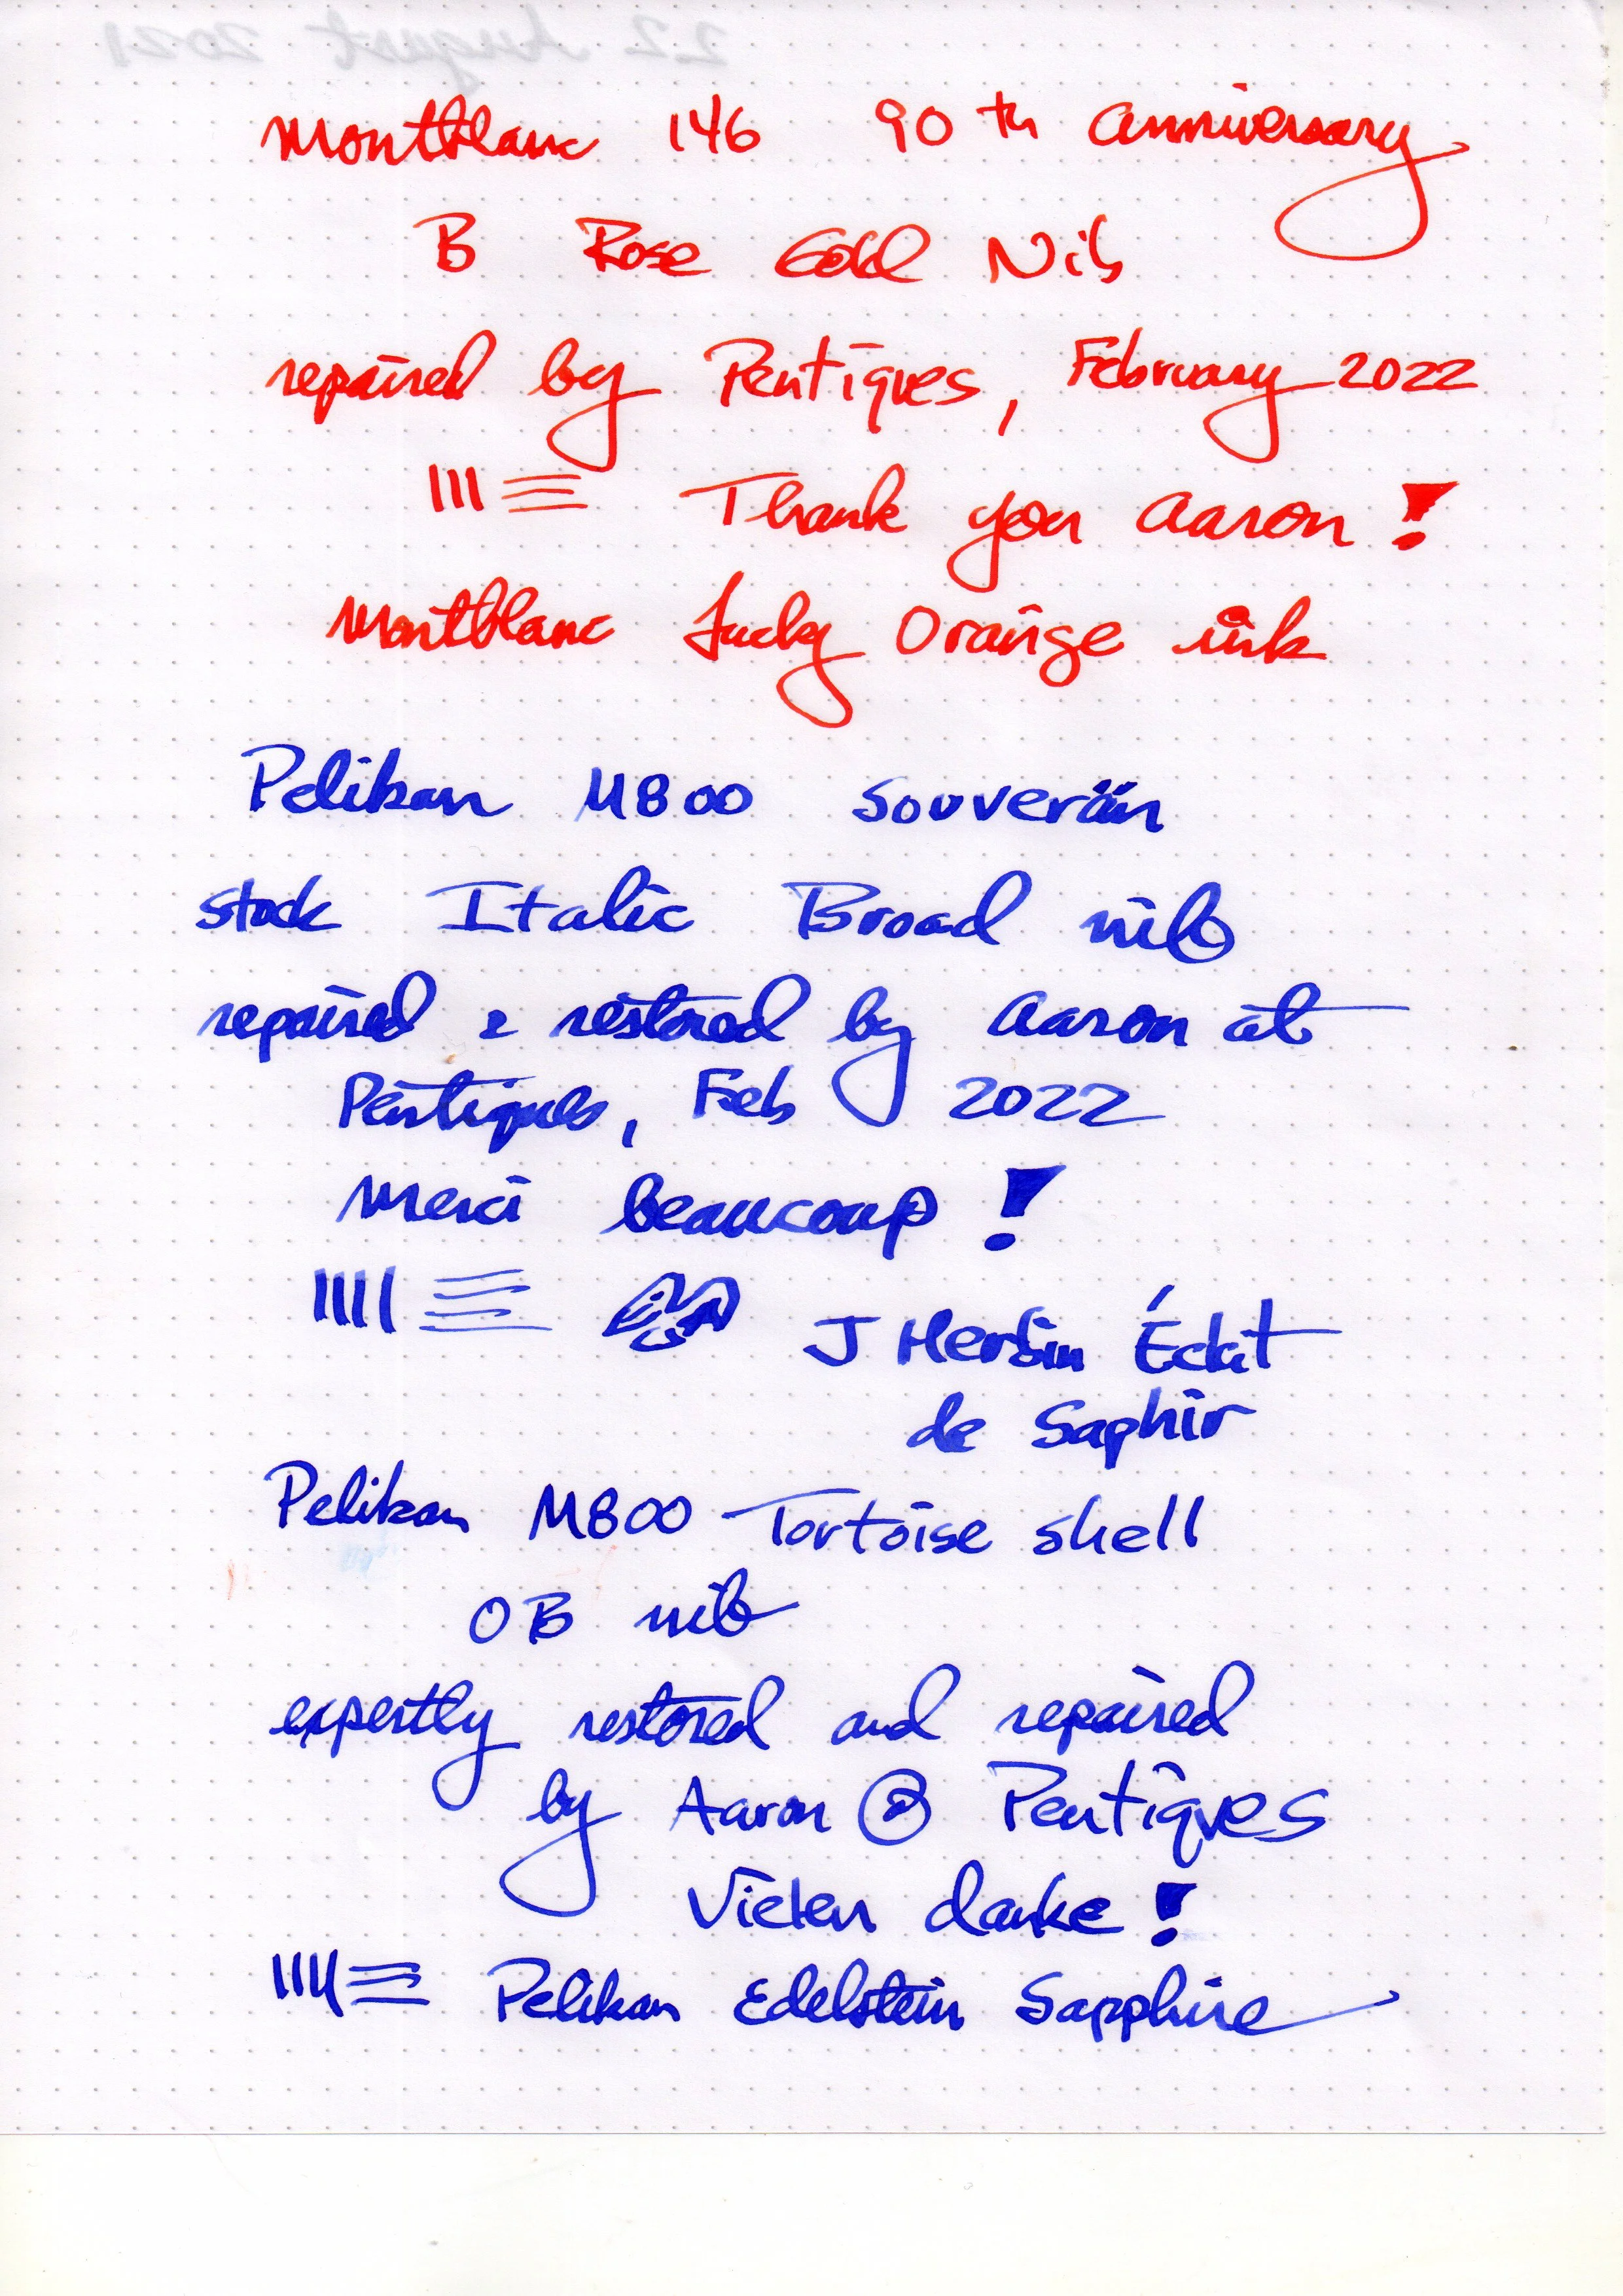 22 August 2021
Montblanc 146 90th Anniversary
B Rose Gold Nib
repaired by Pentiques, February 2022
Thank you Aaron!
Montblanc Lucky Orange ink
Pelikan M800 Souverän
stock Italic Broad nib
repaired & restored by Aaron at
Pentiques, Feb 2022
Merci beaucoup!
J Herbin Éclat
de Saphir
Pelikan M800 Tortoise shell
OB nib
expertly restored and repaired
by Aaron @ Pentiques
Vielen danke!
Pelikan Edelstein Sapphire